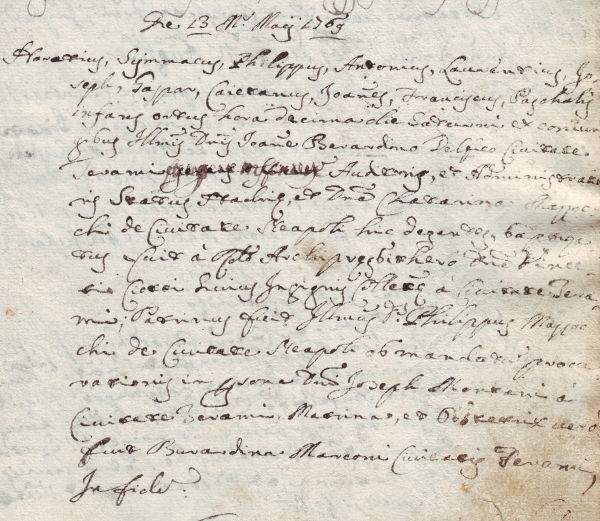 Die 13 Ms. Maij 1769
Horatius, Symmacus, Philippus, Antonius, Laurentius, Jo
seph, Gaspar, Caietanus, Joānes, Franciscus, Paschalis
infans ortus hora decima die Saturni ex coniu
gibus Illmis Dno Joane Berardino Delfico Civitate
Terami Auditoris, et Administrato
ris Status Hadriȩ, et Dna Chatarina Mazzoc
chi de Civitate Neapoli hic degentes, baptiza
tus fuit à Archipresbithero Dno
Ciotti huius Insignis Colletȩ à Civitate Tera
mi; Patrinus fuit Illmus Ds. Philippus Mazzoc
chi de Civitate Neapoli ob mandatū procu
rationis in psona Dni Joseph Montani à
Civitate Terami, Matrina, et Obstetrix vero
fuit Berardina Marconi Civitatis Terami,
In fide.